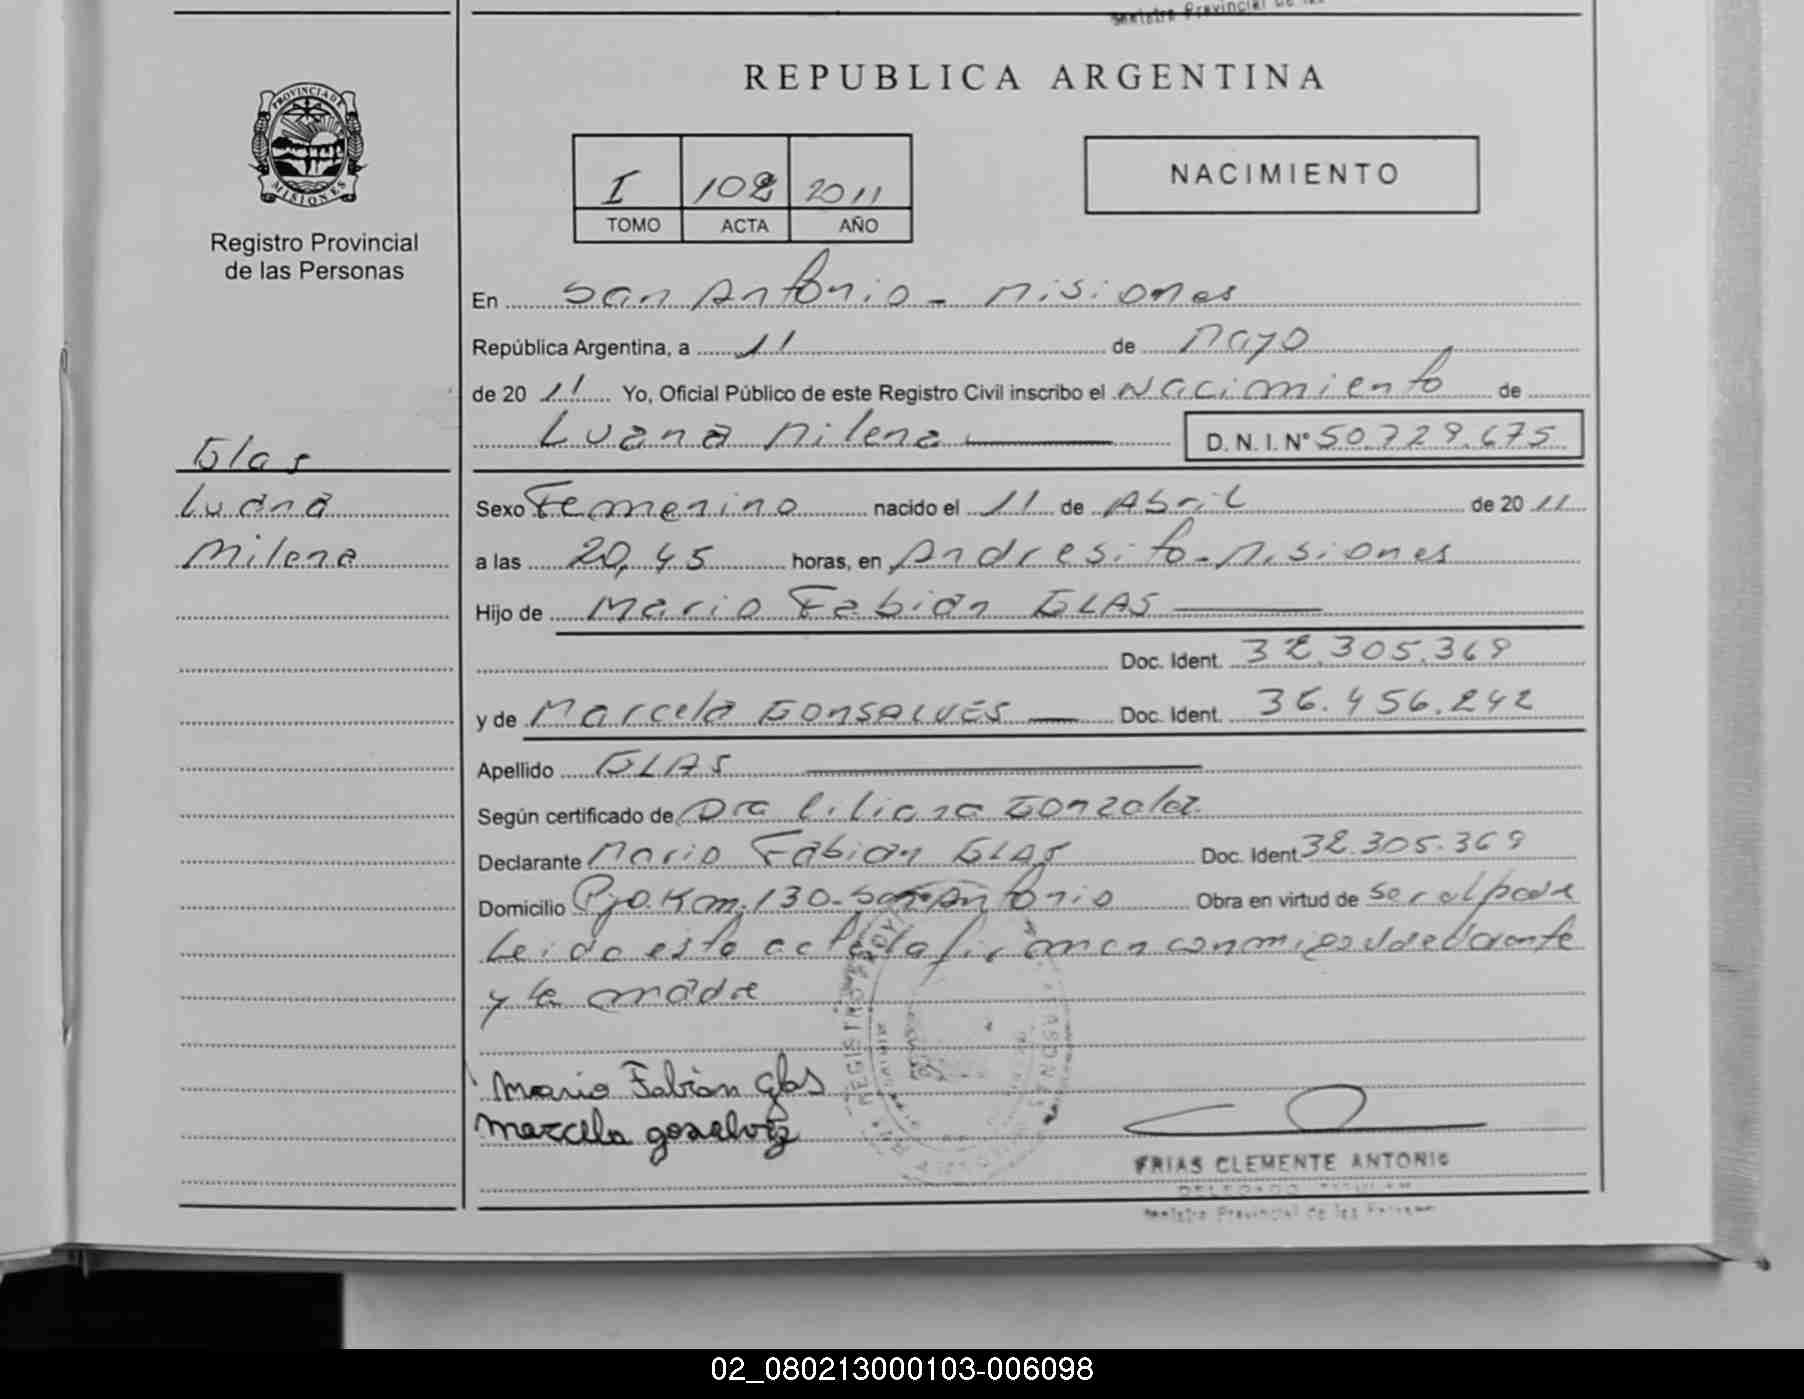 REPUBLICA ARGENTINA
PROVINCIA DE
MISIONES
Registro Provincial
de las Personas
I 102 2011
TOMO ACTA AÑO
NACIMIENTO
En San Antonio - Misiones
República Argentina, a 11 de Mayo
de 20 11 Yo, Oficial Público de este Registro Civil inscribo el Nacimiento de
Luana Milena D. N. I. Nº 50.729.675
Glas
Luana
Milena
Sexo Femenino nacido el 11 de Abril de 20 11
a las 20,45 horas, en Andresito - Misiones
Hijo de Mario Fabián GLAS
Doc. Ident. 32.305.369
y de Marcela GONSALVES Doc. Ident. 36.456.242
Apellido GLAS
Según certificado de Dra Liliana Gonzalez
Declarante Mario Fabian GLAS Doc. Ident. 32.305.369
Domicilio Pjo. Km. 130 - San Antonio Obra en virtud de ser el padre
Leida esta acta la firman conmigo el declarante
y la madre
Mario Fabián Glas
Marcela
FRIAS CLEMENTE ANTONIO
Registro Provincial de las Personas
02_080213000103-006098